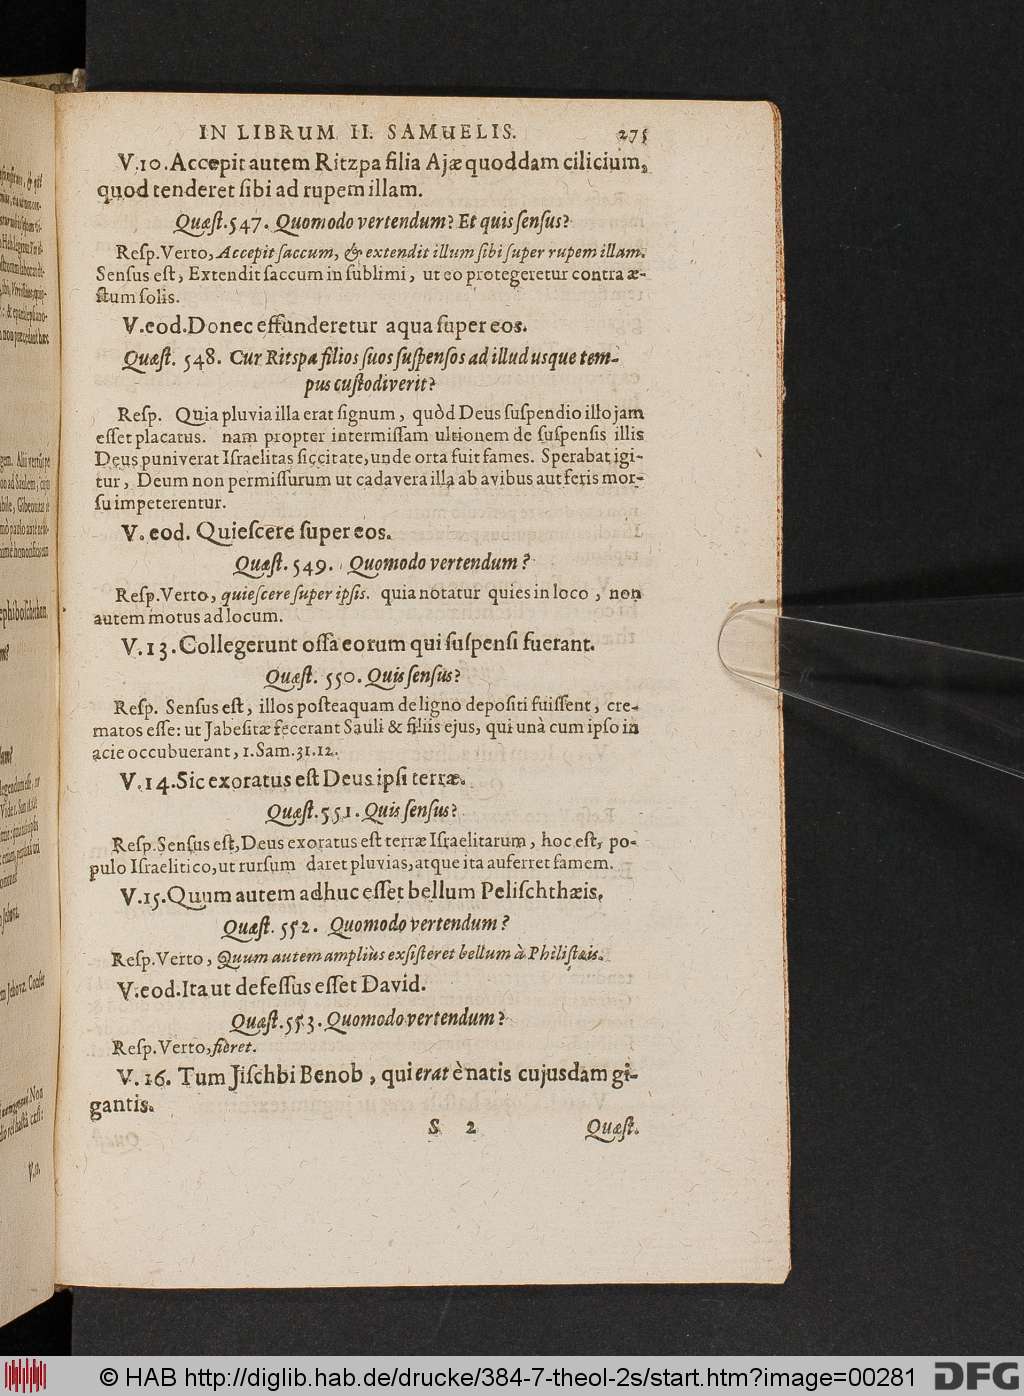 IN LIBRUM II. SAMUELIS. 275
V.10. Accepit autem Ritzpa filia Ajæ quoddam cilicium,
quod tenderet ſibi ad rupem illam.
Quæſt. 547. Quomodo vertendum? Et quis ſenſus?
Reſp. Verto, Accepit ſaccum, & extendit illum ſibi ſuper rupem illam.
Senſus eſt, Extendit ſaccum in ſublimi, ut eo protegeretur contra æ-
ſtum ſolis.
V. eod. Donec effunderetur aqua ſuper eos.
Quæſt. 548. Cur Ritspa filios ſuos ſuſpenſos ad illud usque tem-
pus cuſtodiverit?
Reſp. Quia pluvia illa erat ſignum, quòd Deus ſuſpendio illo jam
eſſet placatus. nam propter intermiſſam ultionem de ſuſpenſis illis
Deus puniverat Iſraelitas ſiccitate, unde orta fuit fames. Sperabat igi-
tur, Deum non permiſſurum ut cadavera illa ab avibus aut feris mor-
ſu impeterentur.
V. eod. Quieſcere ſuper eos.
Quæſt. 549. Quomodo vertendum?
Reſp. Verto, quieſcere ſuper ipſis. quia notatur quies in loco, non
autem motus ad locum.
V. 13. Collegerunt oſſa eorum qui ſuſpenſi fuerant.
Quæſt. 550. Quis ſenſus?
Reſp. Senſus eſt, illos poſteaquam de ligno depoſiti fuiſſent, cre-
matos eſſe: ut Jabeſitæ fecerant Sauli & filiis ejus, qui unà cum ipſo in
acie occubuerant, 1. Sam. 31. 12.
V. 14. Sic exoratus eſt Deus ipſi terræ.
Quæſt. 551. Quis ſenſus?
Reſp. Senſus eſt, Deus exoratus eſt terræ Iſraelitarum, hoc eſt, po-
pulo Iſraelitico, ut rurſum daret pluvias, atque ita auferret famem.
V. 15. Quum autem adhuc eſſet bellum Peliſchthæis,
Quæſt. 552. Quomodo vertendum?
Reſp. Verto, Quum autem ampliùs exſiſteret bellum à Philiſtæis.
V. eod. Ita ut defeſſus eſſet David.
Quæſt. 553. Quomodo vertendum?
Reſp. Verto, fieret.
V. 16. Tum Jiſchbi Benob, qui erat è natis cujusdam gi-
gantis.
S 2 Quæſt.
© HAB http://diglib.hab.de/drucke/384-7-theol-2s/start.htm?image=00281
DFG